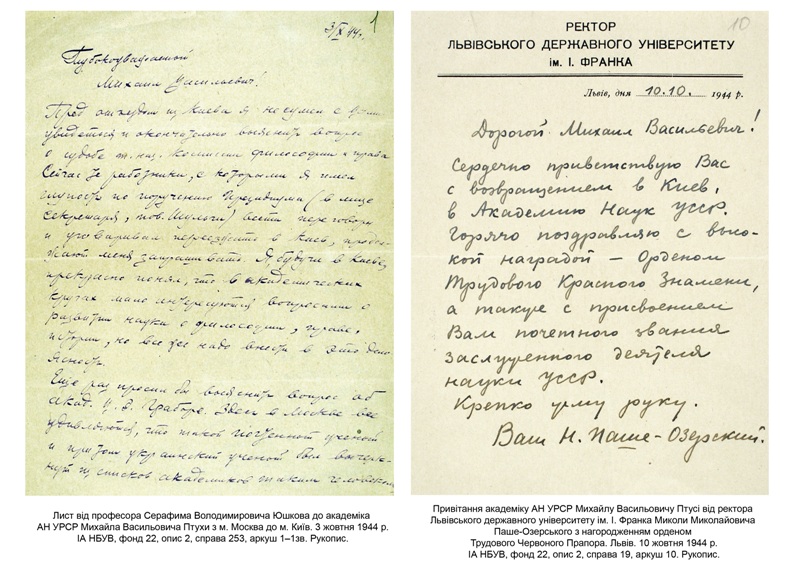 3/X 44г. 1
Глубокоуважаемый
Михаил Васильевич!
Пред отъездом из Киева я не сумел с Вами
увидеться и окончательно выяснить вопрос
о судьбе т. наз. комиссии философии и права
Сейчас же работники, с которыми я имел
глупость по поручению Президиума (в лице
секретаря, тов. ) вести переговоры
и уговаривал переехать в Киев, продол-
жают меня запрашивать. Я, будучи в Киеве,
прекрасно понял, что в академических
кругах мало интересуются вопросами о
развитии науки о философии, праве,
истории, но все же надо внести в это дело
ясность.
Еще раз просил бы выяснить вопрос об
акад. Грабаре. Здесь в Москве все
удивляются, что такой почтенный ученый
и притом украинский ученый был вычерк-
нут из списков академиков таким
Лист від професора Серафима Володимировича Юшкова до академіка
АН УРСР Михайла Васильовича Птухи з м. Москва до м. Київ. 3 жовтня 1944 р.
ІА НБУВ, фонд 22, опис 2, справа 253, аркуш 1–1зв. Рукопис.
10
РЕКТОР
ЛЬВІВСЬКОГО ДЕРЖАВНОГО УНІВЕРСИТЕТУ
ім. І. ФРАНКА
Львів, дня 10.10. 1944 р.
Дорогой Михаил Васильевич!
Сердечно приветствую Вас
с возвращением в Киев,
в Академию Наук УССР.
Горячо поздравляю с высо-
кой наградой – Орденом
Трудового Красного Знамени,
а также с присвоением
Вам почетного звания
заслуженного деятеля
науки УССР.
Крепко жму руку.
Ваш Н. Паше-Озерский.
Привітання академіку АН УРСР Михайлу Васильовичу Птусі від ректора
Львівського державного університету ім. І. Франка Миколи Миколайовича
Паше-Озерського з нагородженням орденом
Трудового Червоного Прапора. Львів. 10 жовтня 1944 р.
ІА НБУВ, фонд 22, опис 2, справа 19, аркуш 10. Рукопис.